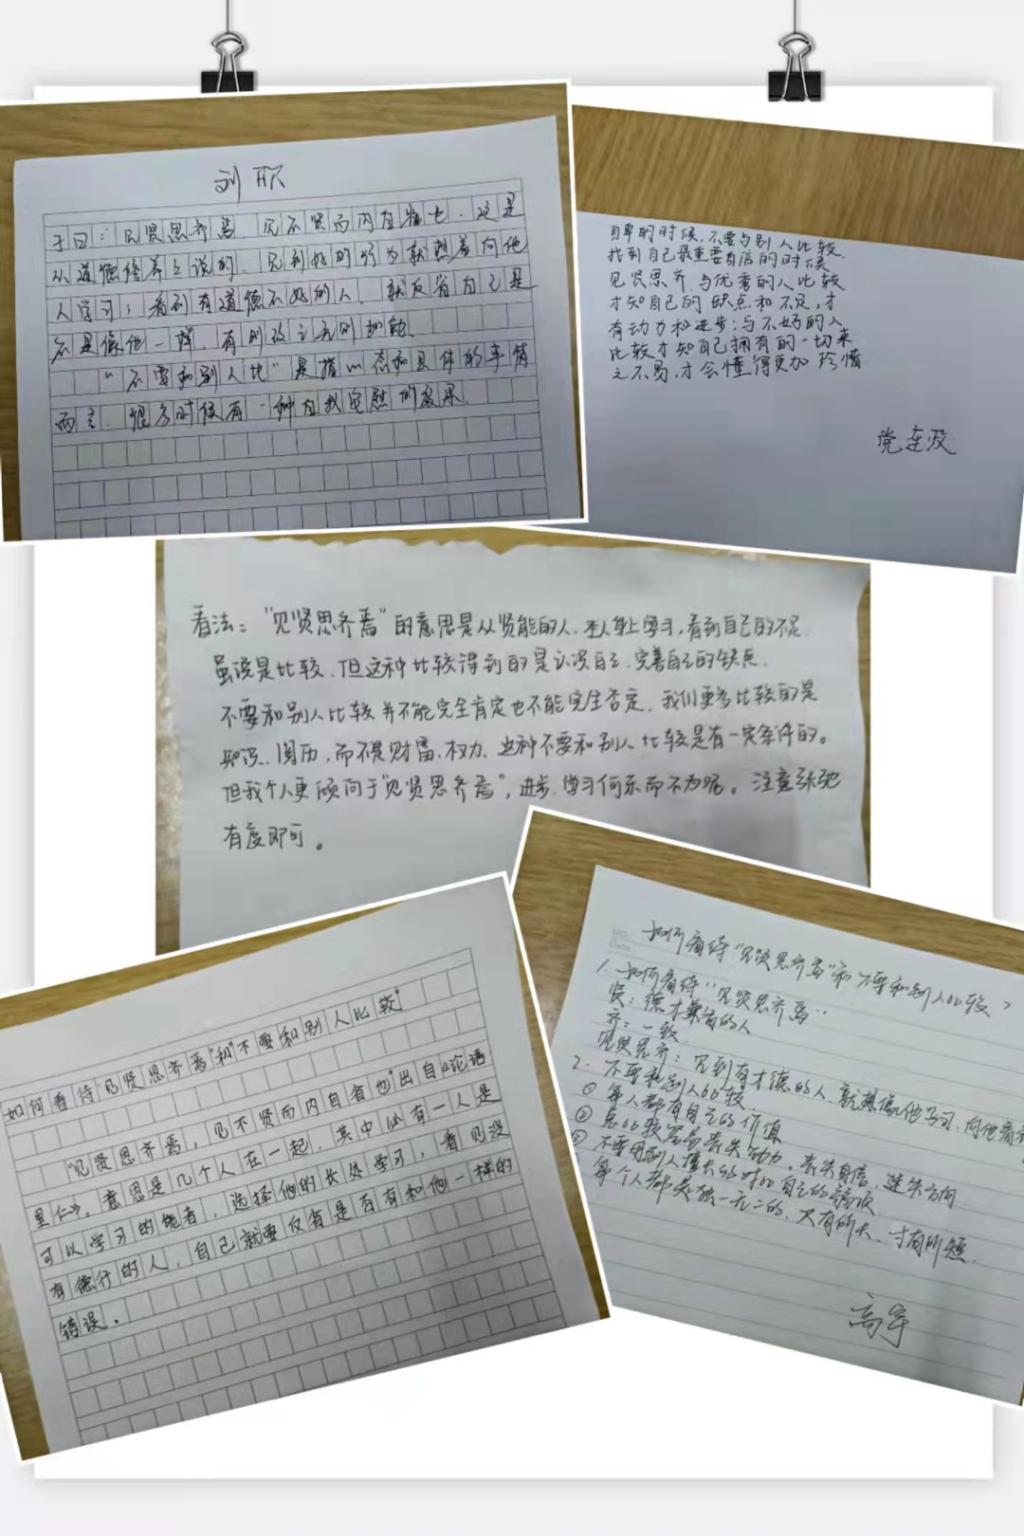 刘
子曰：见贤思齐焉 见不贤而内自省也。这是
从道德修养上说的。见到好的行为就想着向他
人学习；看到有道德不好的人、就反省自己是
不是像他一样，有则改之无则
“不要和别人比”是指 态和具体的事情
而言。很多时候有一种自我安慰的效果
自卑的时候，不要与别人比较
找到自己最重要自信的时候
见贤思齐，与优秀的人比较
才知自己的缺点和不足，才
有动力和进步；与不好的人
比较才知自己拥有的一切来
之不易，才会懂得更加珍惜
党连
看法：“见贤思齐焉”的意思是从贤能的人 人身上学习，看到自己的不足，
虽说是比较，但这种比较得到的是认识自己、完善自己的缺点。
不要和别人比较并不能完全肯定也不能完全否定，我们更多比较的是
知识、阅历，而不是财富、权力，这种不要和别人比较是有一定条件的。
但我个人更倾向于“见贤思齐焉”，进步、学习何乐而不为呢。注意张弛
有度即可。
如何看待“见贤思齐焉”和“不要和别人比较”
“见贤思齐焉，见不贤而内自省也”出自《论语·
里仁》。意思是几个人在一起，其中必有一人是
可以学习的 者，选择他的长处学习，看见没
有德行的人，自己就要反省是否有和他一样的
错误。
如何看待“见贤思齐焉”和“不要和别人比较”
1. 如何看待“见贤思齐焉”
贤：德才兼备的人
齐：一致
见贤思齐：见到有才德的人，就想像他学习，向他看齐
2. 不要和别人比较
① 每人都有自己的价值
② 总比较容易丧失动力，丧失自信，迷失方向
③ 不要用别人擅长的对比自己的
每个人都是独一无二的，尺有所长，寸有所短。
高军